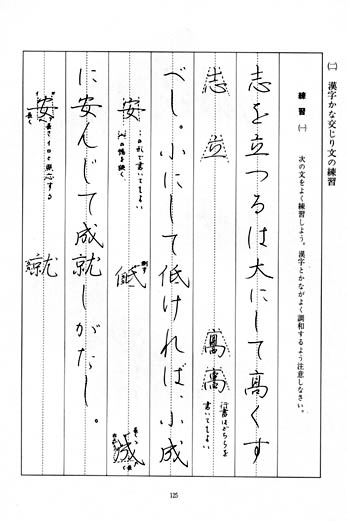 (二) 漢字かな交じり文の練習
練習 (一) 次の文をよく練習しよう。漢字とかながよく調和するよう注意しなさい。
志を立つるは大にして高くす
志 立 高 高 行書はどちらを書いてもよい
べし。小にして低ければ、小成
安 の形で書いてもよい の幅を狭く 低 成 長く
に安んじて成就しがたし。
安 長く 就
125